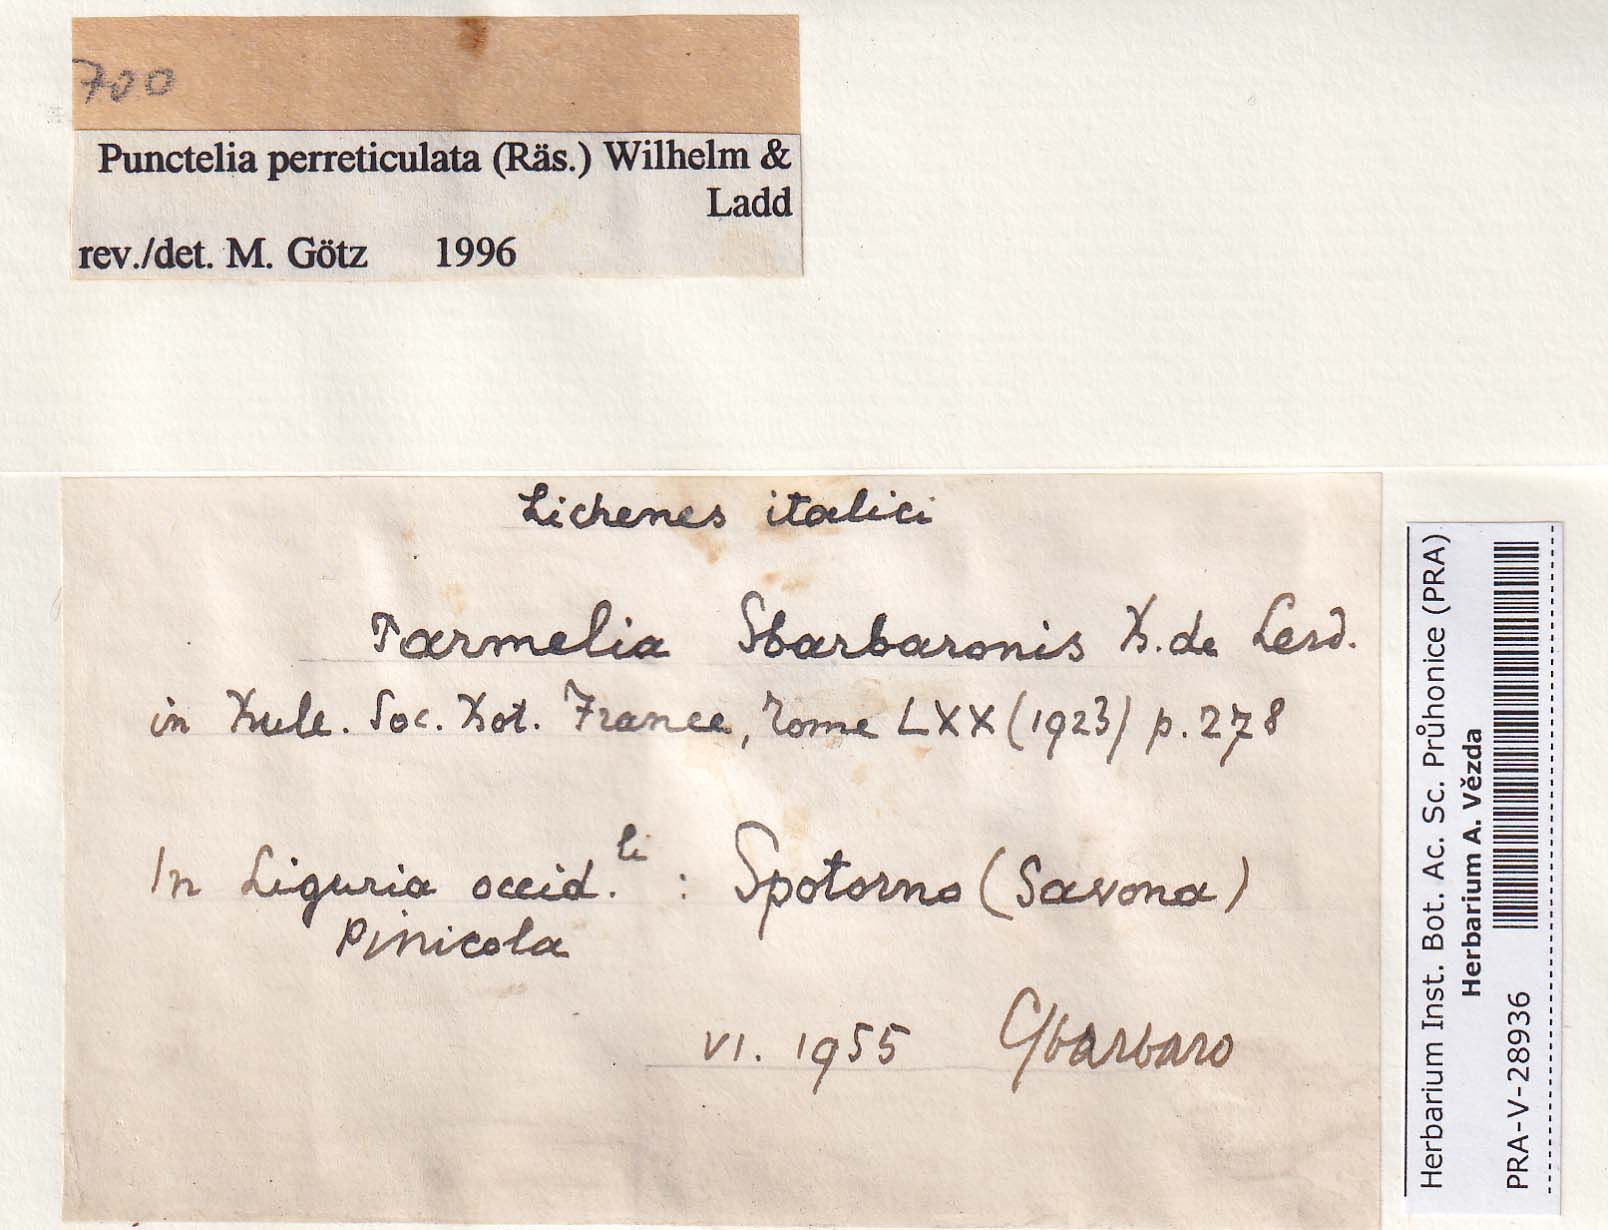 700
Punctelia perreticulata (Räs.) Wilhelm &
Ladd
rev./det. M. Götz 1996
Lichenes italici
Parmelia Sbarbaronis B. de Lesd.
in Bull. Soc. Bot. France, Tome LXX (1923) p. 278
In Liguria occid.li : Spotorno (Savona)
Pinicola
VI. 1955 Sbarbaro
Herbarium Inst. Bot. Ac. Sc. Průhonice (PRA)
Herbarium A. Vězda
PRA-V-28936